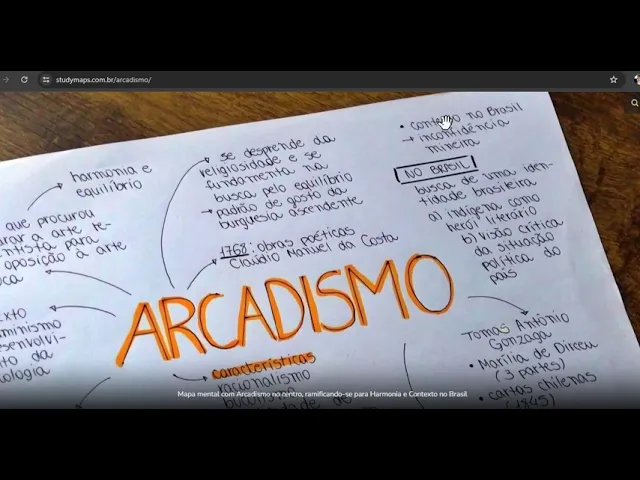 studymaps.com.br/arcadismo/
harmonia e
equilíbrio
se desprende da
religiosidade e se
fundamenta na
busca pelo equilíbrio
→ padrão de gosto da
burguesia ascendente
• contexto no Brasil
→ inconfidência
mineira
NO BRASIL
busca de uma iden-
tidade brasileira
a) indígena como
herói literário
b) visão crítica
da situação
política do
país
que procurou
a arte re-
entista para
oposição à arte
1768: obras poéticas
Claudio Manuel da Costa
ARCADISMO
da
características
racionalismo
bucolismo
de
Tomás Antônio
Gonzaga
• Marília de Dirceu
(3 partes)
• cartas chilenas
(1845)
Mapa mental com Arcadismo no centro, ramificando-se para Harmonia e Contexto no Brasil